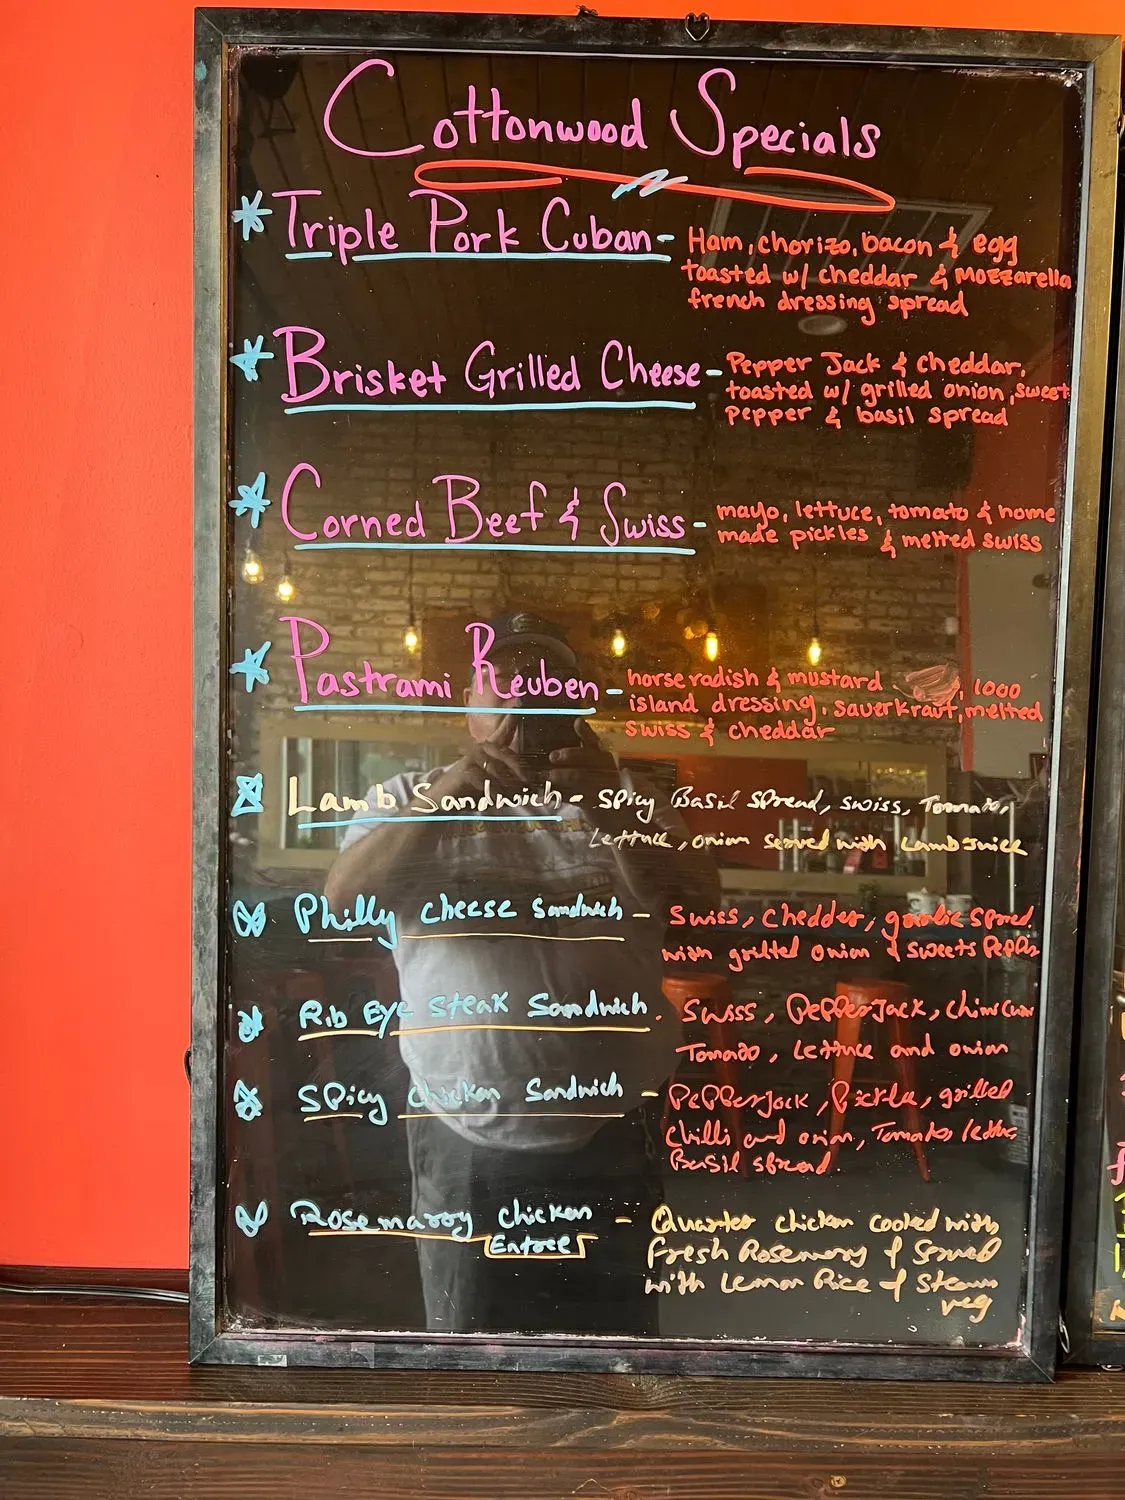 Cottonwood Specials
Triple Pork Cuban - Ham, chorizo, bacon & egg
toasted w/ cheddar & mozzarella
french dressing spread
Brisket Grilled Cheese - Pepper Jack & cheddar,
toasted w/ grilled onion, sweet
pepper & basil spread
Corned Beef & Swiss - mayo, lettuce, tomato & home
made pickles & melted swiss
Pastrami Reuben - horse radish & mustard, 1000
island dressing, sauerkraut, melted
swiss & cheddar
Lamb Sandwich - Spicy Basil Spread, swiss, Tomato,
Lettuce, onion served with Lamb Juice
Philly cheese Sandwich - Swiss, Chedder, garlic spread
with grilled onion & sweets Pepper
Rib Eye Steak Sandwich. Swiss, PepperJack,
Tomato, Lettuce and onion
Spicy Chicken Sandwich - PepperJack, Pickle, grilled
chilli and onion, Tomato, lettuc,
Basil spread.
Rosemarry Chicken - Quarter chicken cooked with
Entree
fresh Rosemary & Served
with Lemon Rice & Steam
veg